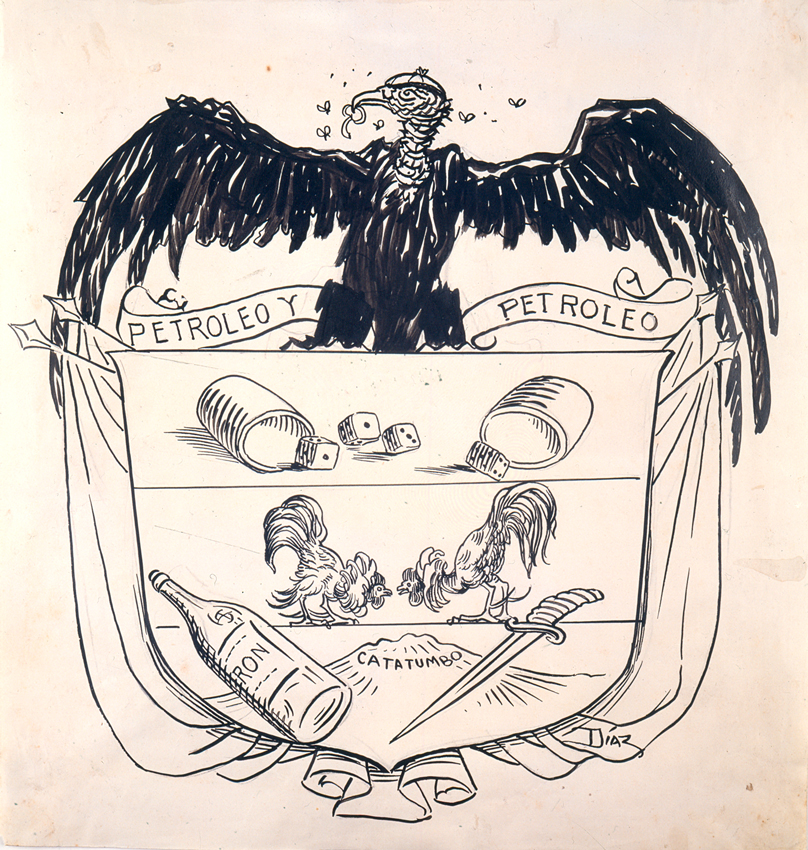 PETROLEO Y PETROLEO
RON
CATATUMBO
DÍAZ